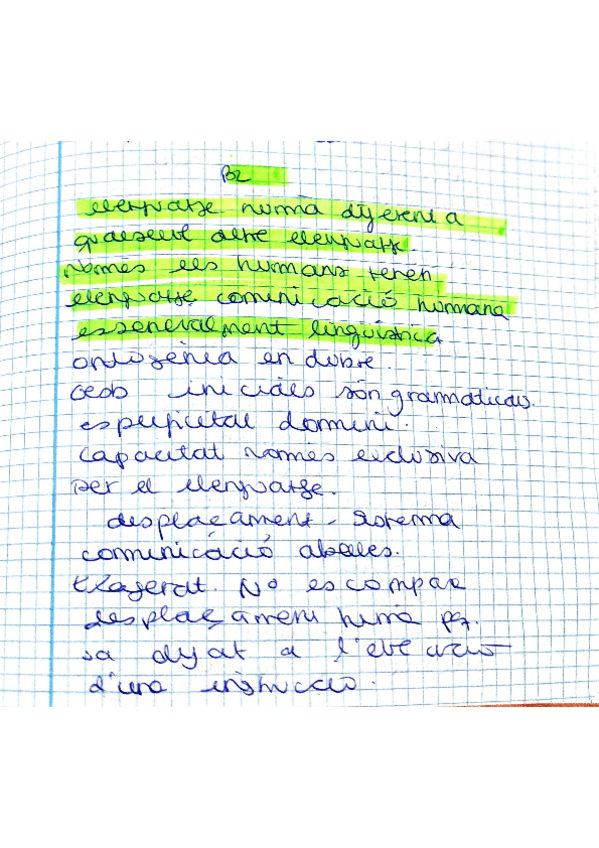 B2
llenguatge humà diferent a
qualsevol altre llenguatge.
Només els humans tenen
llenguatge comunicació humana
essencialment lingüística
ontogènia en dubte.
inicials són gramaticals.
especificitat domini.
Capacitat només exclusiva
per el llenguatge.
desplaçament - sistema
comunicació abelles.
Exagerat. No es compar
desplaçament humà pq.
sa a l'execució
d'una instrucció.